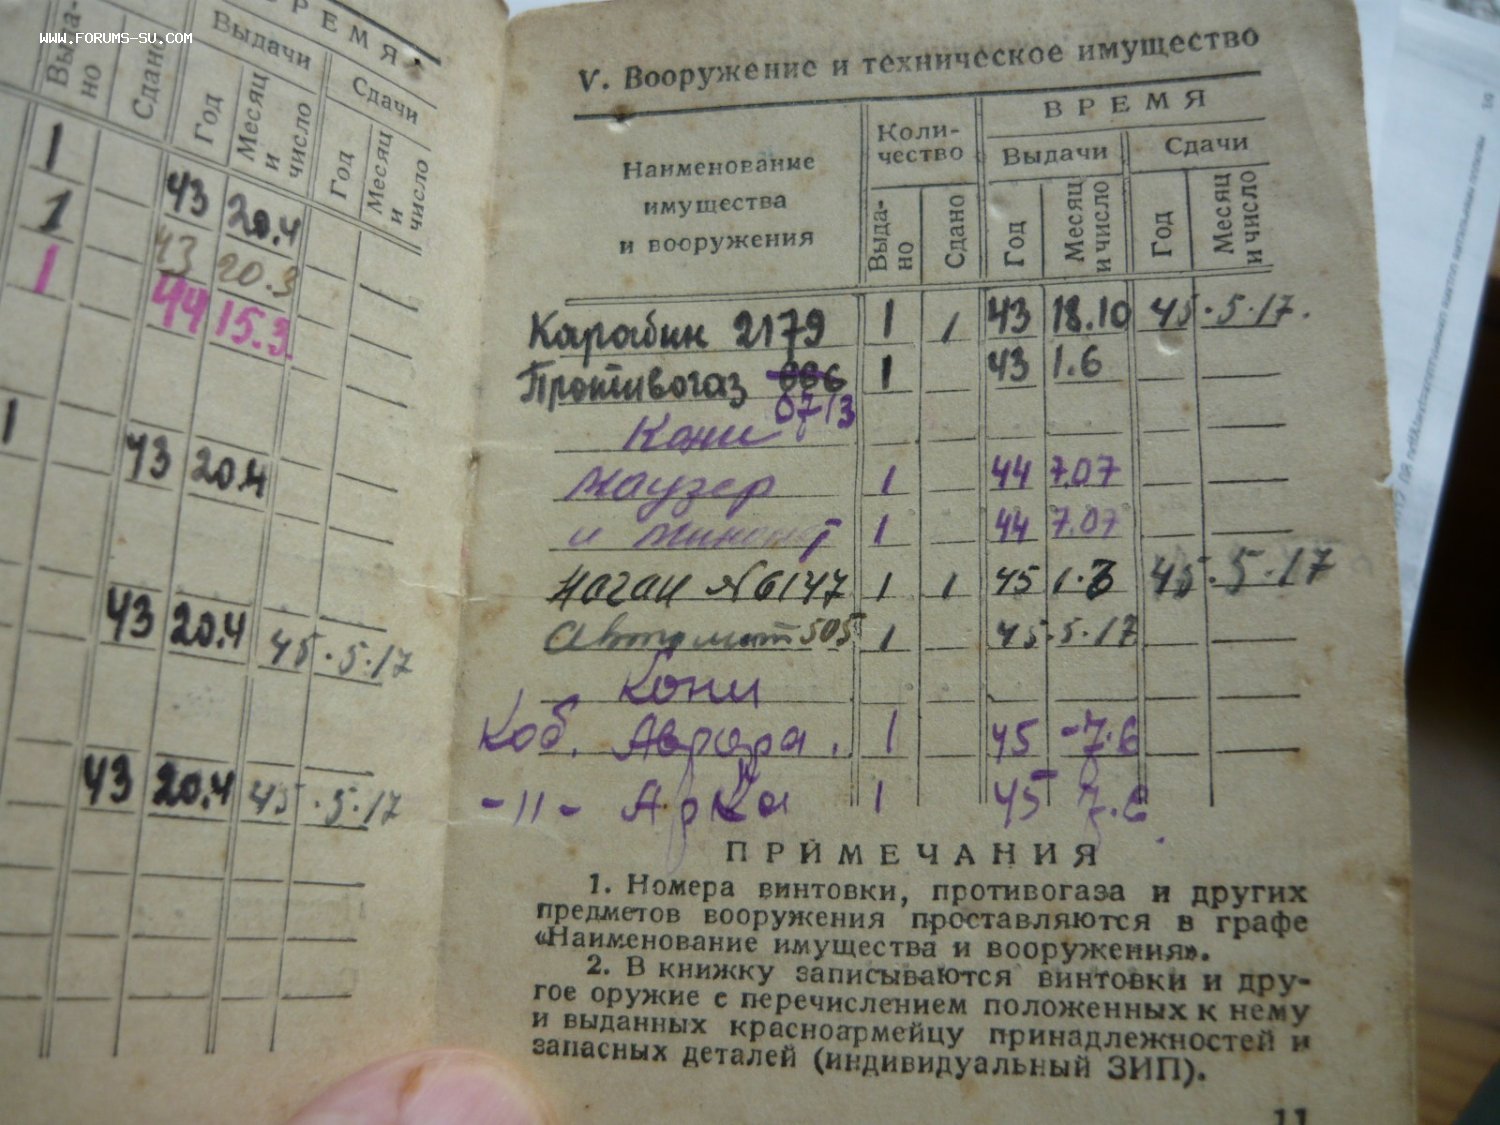 www.forums-su.com
ВРЕМЯ
Выда-
но
Сдано
Выдачи
Сдачи
Год
Месяц
и
число
Год
Месяц
и
число
1 43 20.4
1 43 20.3
1 44 15.3
1 43 20.4
43 20.4 45.5.17
43 20.4 45.5.17
V. Вооружение и техническое имущество
Наименование
имущества
и вооружения
Коли-
чество
ВРЕМЯ
Выдачи
Сдачи
Выда-
но
Сдано
Год
Месяц
и число
Год
Месяц
и число
Карабин 2179 1 1 43 18.10 45.5.17.
Противогаз 1 43 1.6
0713
Кони
Маузер 1 44 7.07
и 1 44 7.07
Наган №6147 1 1 45 1.3 45.5.17
Автомат 505 1 45.5.17
Кони
Коб. Аврора. 1 45 -7.6
-11- Арка 1 45 7.6.
ПРИМЕЧАНИЯ
1. Номера винтовки, противогаза и других
предметов вооружения проставляются в графе
«Наименование имущества и вооружения».
2. В книжку записываются винтовки и дру-
гое оружие с перечислением положенных к нему
и выданных красноармейцу принадлежностей и
запасных деталей (индивидуальный ЗИП).
11